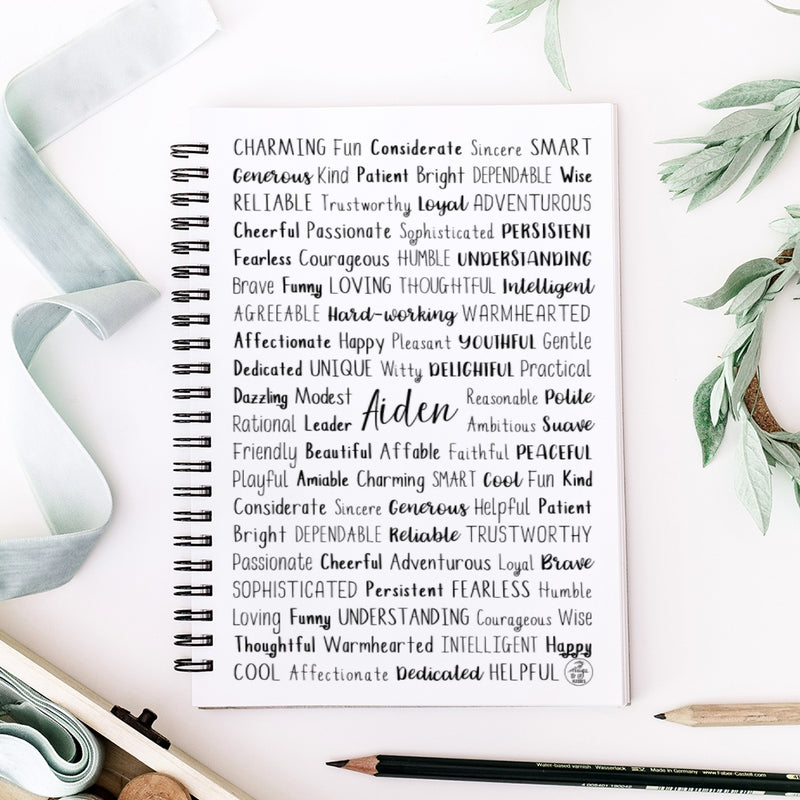 CHARMING Fun Considerate Sincere SMART
Generous Kind Patient Bright DEPENDABLE Wise
RELIABLE Trustworthy Loyal ADVENTUROUS
Cheerful Passionate Sophisticated PERSISTENT
Fearless Courageous HUMBLE UNDERSTANDING
Brave Funny LOVING THOUGHTFUL Intelligent
AGREEABLE Hard-working WARMHEARTED
Affectionate Happy Pleasant YOUTHFUL Gentle
Dedicated UNIQUE Witty DELIGHTFUL Practical
Dazzling Modest Reasonable Polite
Aiden
Rational Leader Ambitious Suave
Friendly Beautiful Affable Faithful PEACEFUL
Playful Amiable Charming SMART Cool Fun Kind
Considerate Sincere Generous Helpful Patient
Bright DEPENDABLE Reliable TRUSTWORTHY
Passionate Cheerful Adventurous Loyal Brave
SOPHISTICATED Persistent FEARLESS Humble
Loving Funny UNDERSTANDING Courageous Wise
Thoughtful Warmhearted INTELLIGENT Happy
COOL Affectionate Dedicated HELPFUL
Water-based varnish Wasserlack Made in Germany www.Faber-Castell.com